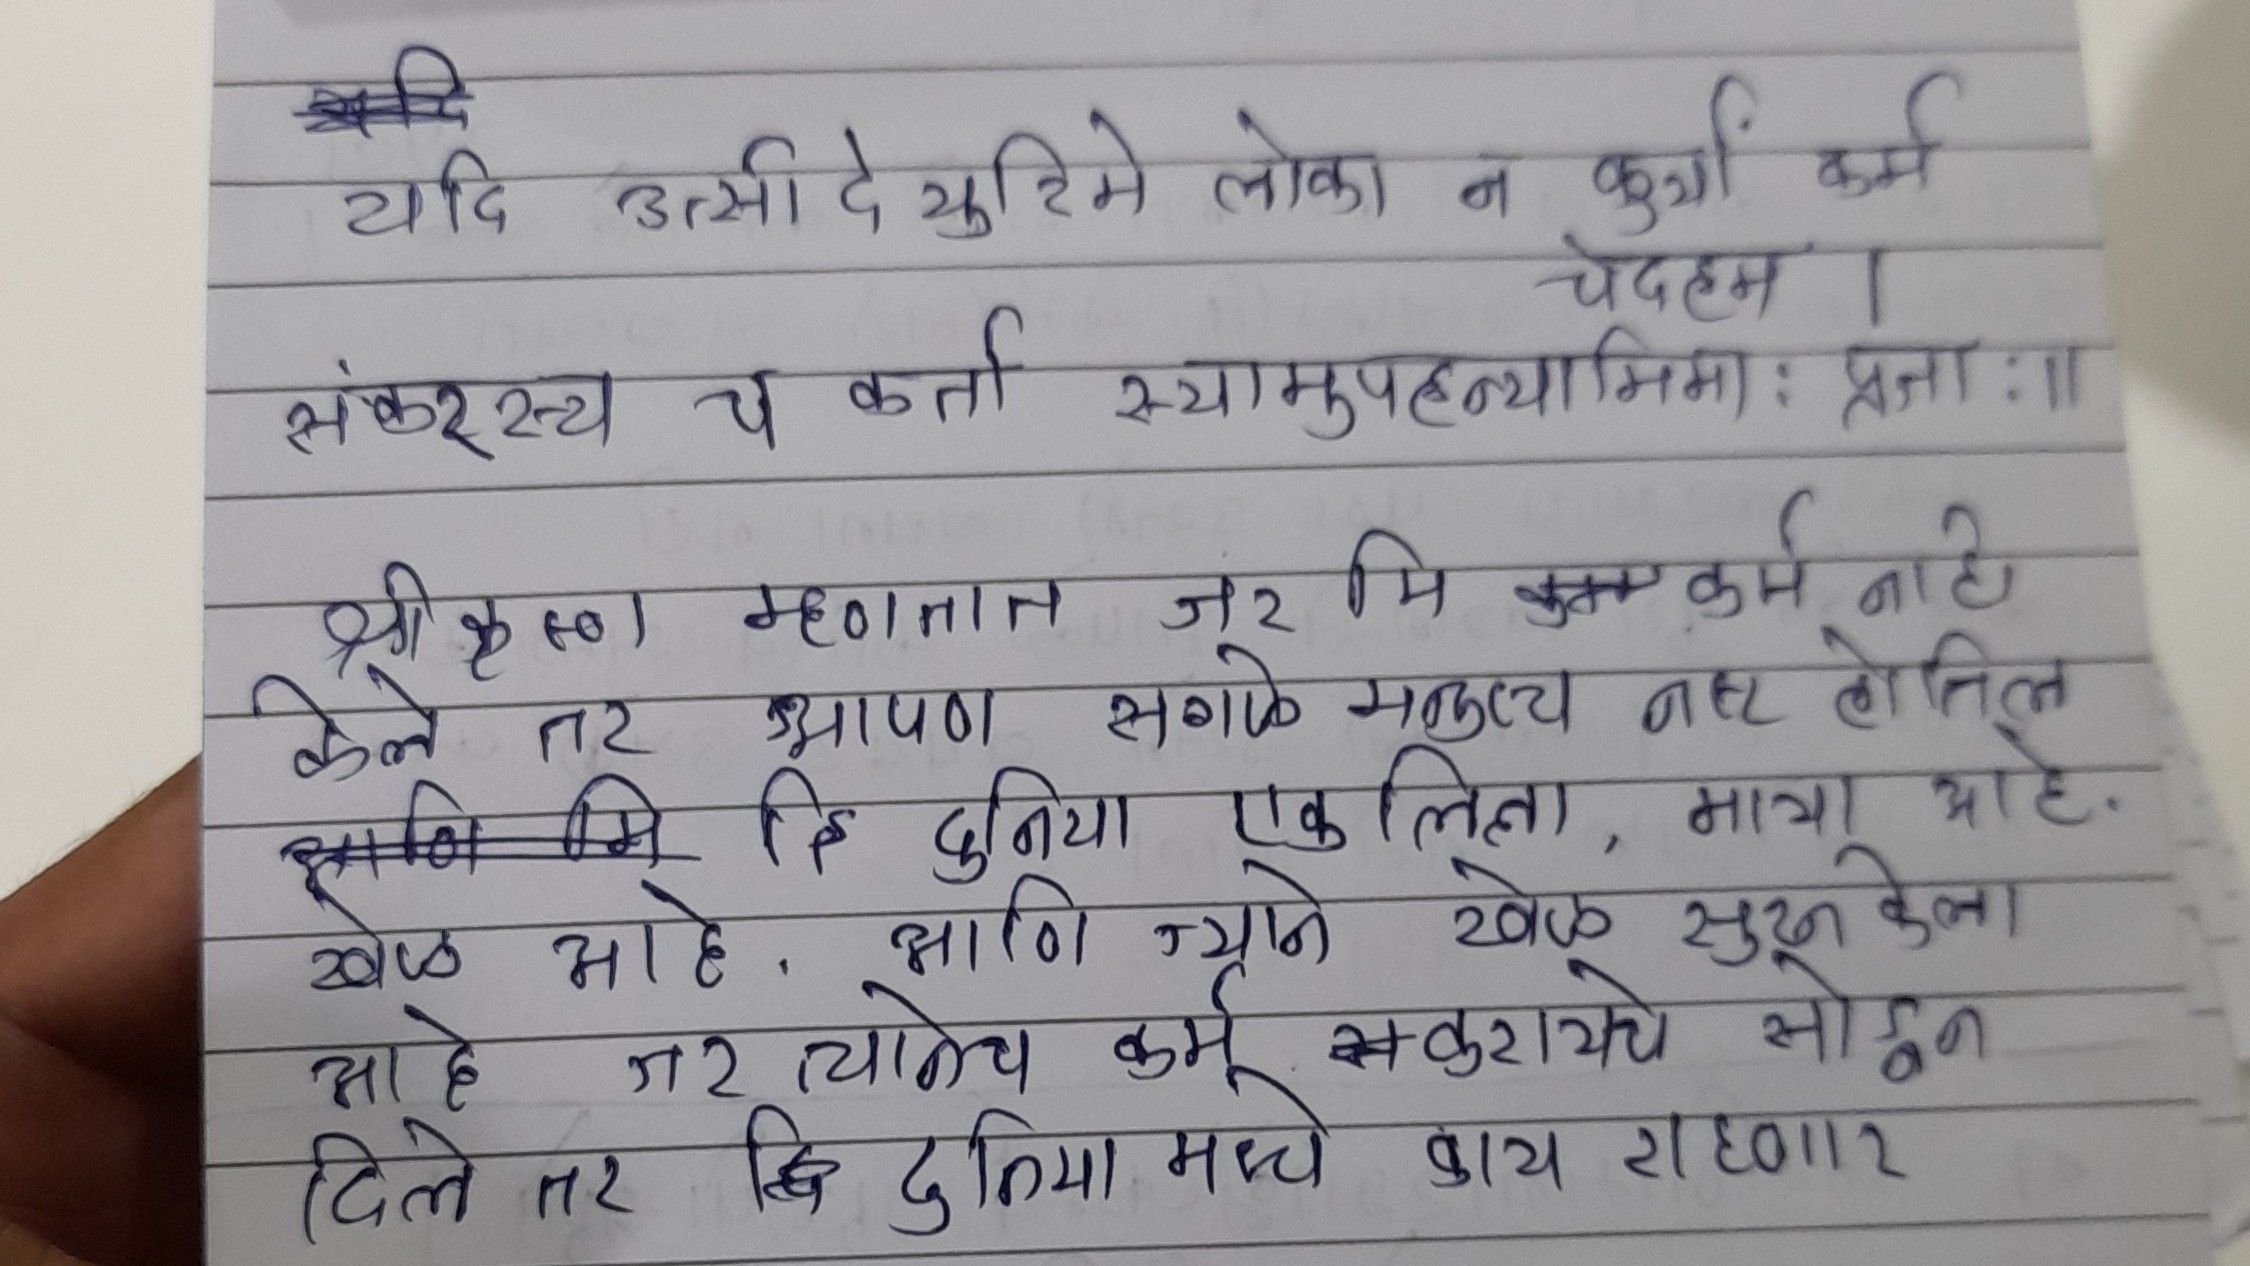 यदि उत्सीदेयुरिमे लोका न कुर्यां कर्म
चेदहम ।
संकरस्य च कर्ता स्यामुपहन्यामिमा: प्रजा :॥
श्री कृष्ण म्हणतात जर मि कर्म नाही
केले तर आपण सगळे मनुष्य नष्ट होतिल
हि दुनिया एक लिला, माया आहे.
खेळ आहे. आणि ज्याने खेळ सुरू केला
आहे जर त्यानेच कर्म करायचे सोडून
दिले तर हि दुनिया मध्ये काय राहणार